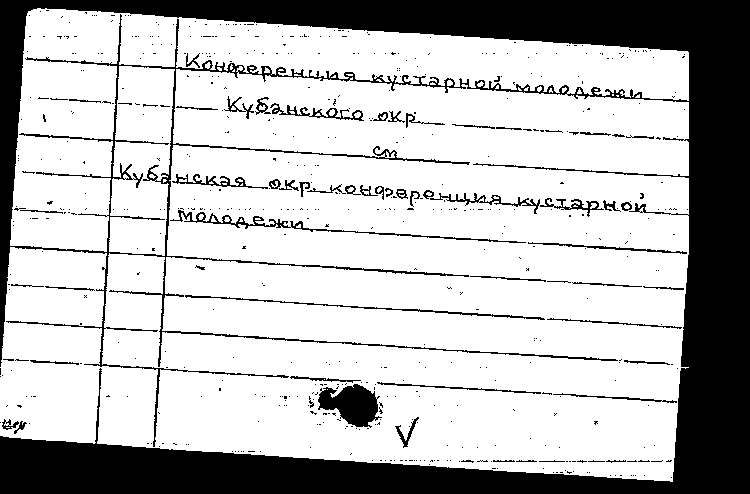 Конференция кустарной молодежи
Кубанского окр.
см
Кубанская окр. конференция кустарной
молодежи.